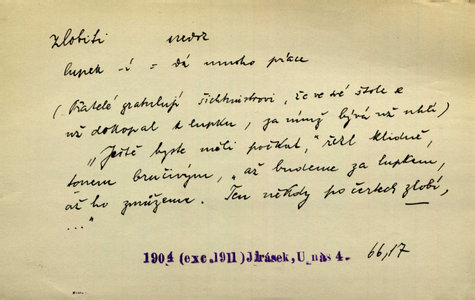 zlobiti nedok
lupek -í = dá mnoho práce
(Přátelé gratulují šichtmistrovi, že ve své štole se
už dokopal k lupku, za nímž bývá už uhlí)
"Ještě byste měli počkat," řekl klidně,
tonem bručivým, "až budeme za lupkem,
až ho zmůžeme. Ten někdy po čertech zlobí,
..."
1904 (exc.1911) Jirásek, U nás 4. 66,17